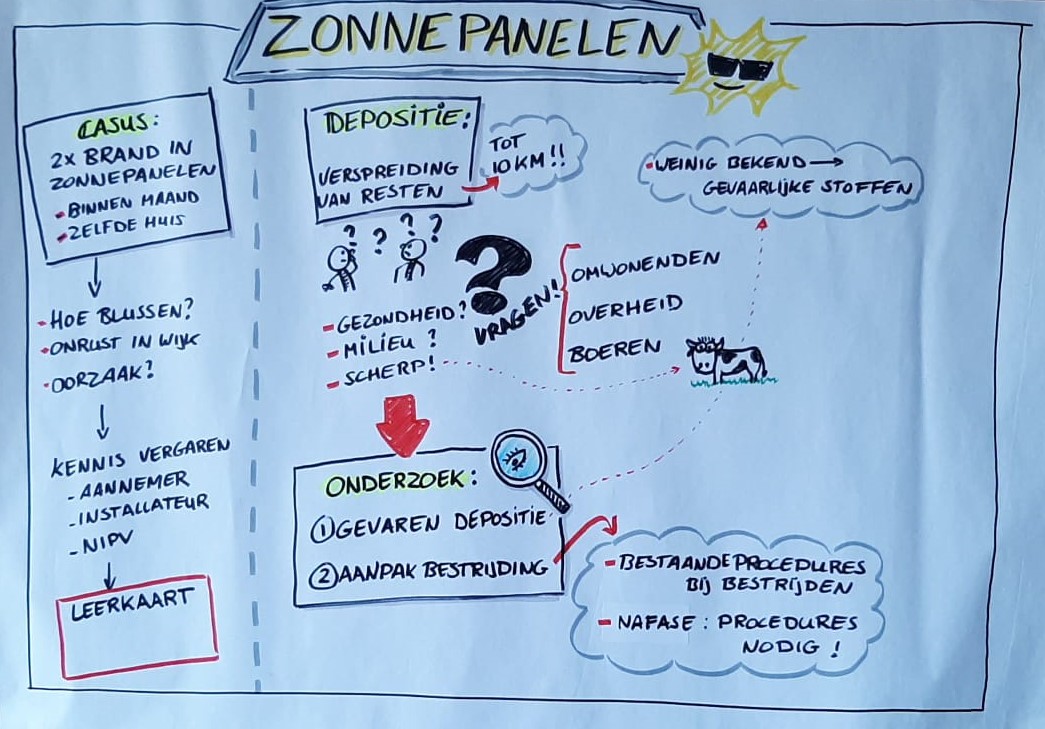 ZONNEPANELEN
CASUS:
2X BRAND IN
ZONNEPANELEN
- BINNEN MAAND
- ZELFDE HUIS
- HOE BLUSSEN?
- ONRUST IN WIJK
- OORZAAK?
KENNIS VERGAREN
- AANNEMER
- INSTALLATEUR
- NIPV
LEERKAART
DEPOSITIE:
VERSPREIDING
VAN RESTEN
TOT
10 KM!!
? ? ? ?
?
VRAGEN!
- GEZONDHEID?
- MILIEU?
- SCHERP!
OMWONENDEN
OVERHEID
BOEREN
- WEINIG BEKEND →
GEVAARLIJKE STOFFEN
ONDERZOEK:
① GEVAREN DEPOSITIE
② AANPAK BESTRIJDING
- BESTAANDE PROCEDURES
BIJ BESTRIJDEN
- NAFASE: PROCEDURES
NODIG!